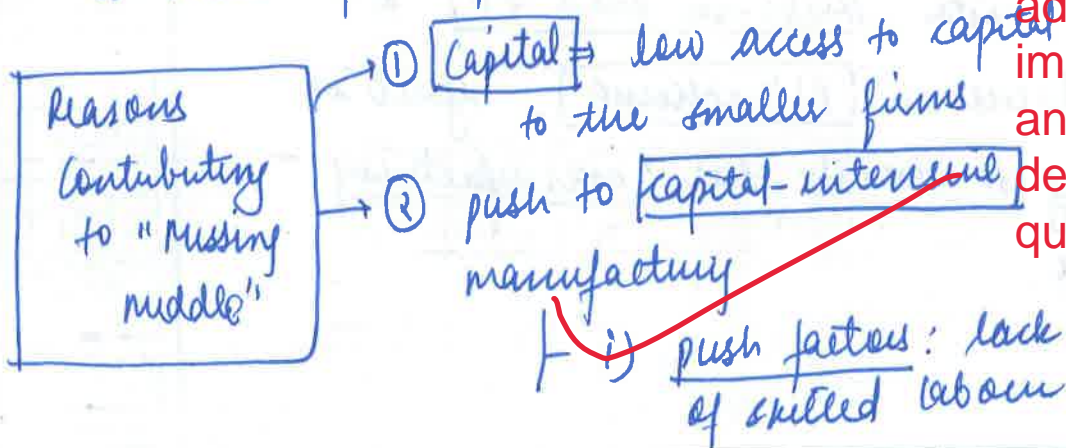 Reasons
Contributing
to "Missing
middle"
① Capital → low access to capital
to the smaller firms
② push to capital-intensive
manufacturing
i) push factors: lack
of skilled labour
ad
im
an
de
qu